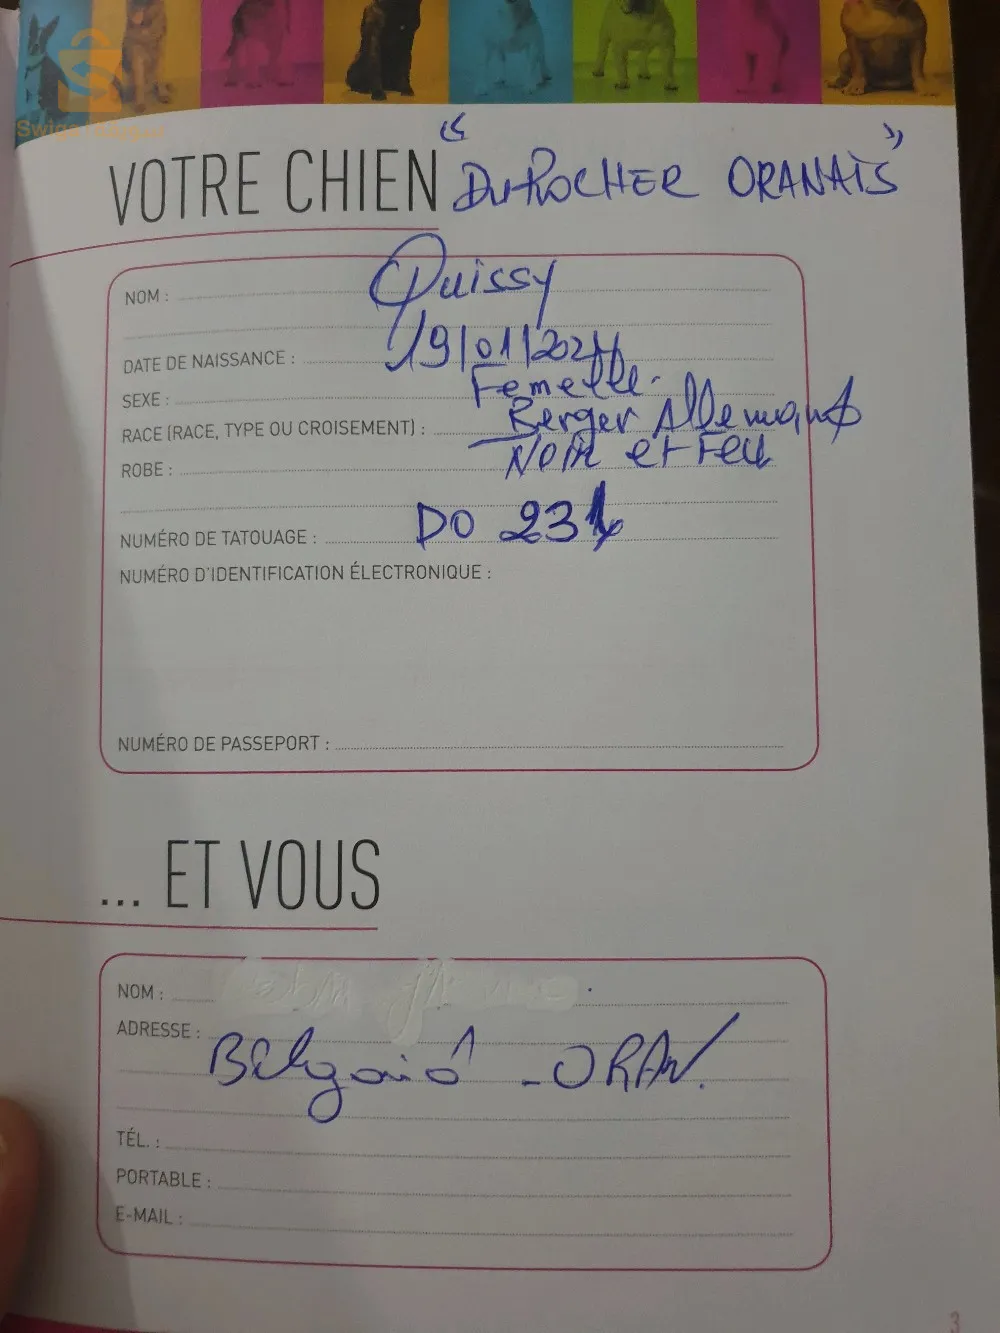 VOTRE CHIEN "Du ROCHER ORANAIS"
NOM : Quissy
DATE DE NAISSANCE : 19/01/2021
SEXE : Femelle.
RACE (RACE, TYPE OU CROISEMENT) : Berger Allemand
ROBE : NOIR et FEU
NUMÉRO DE TATOUAGE : DO 231
NUMÉRO D'IDENTIFICATION ÉLECTRONIQUE :
NUMÉRO DE PASSEPORT :
... ET VOUS
NOM :
ADRESSE :
Belgaid - ORAN.
TÉL. :
PORTABLE :
E-MAIL :
3